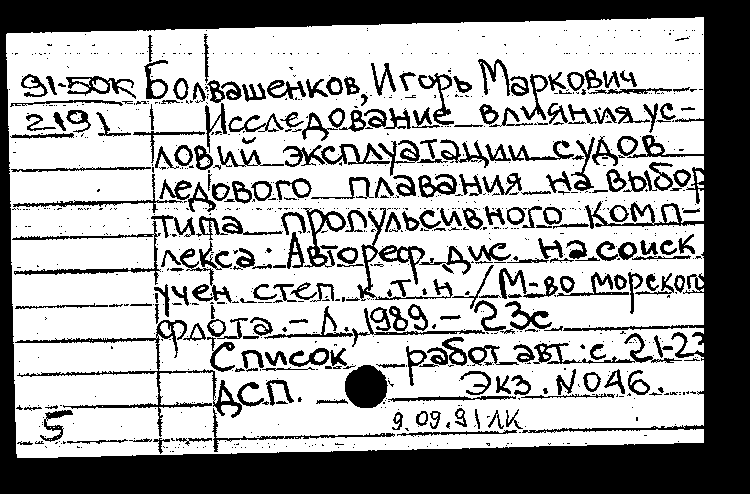 91-50к Болвашенков, Игорь Маркович
2191 Исследование влияния ус-
ловий эксплуатации судов
ледового плавания на выбор
типа пропульсивного комп-
лекса: Автореф. дис. на соиск
учен. степ. к.т.н. / М-во морского
флота. - Л., 1989. - 23с
Список работ авт.: с. 21-23
ДСП. Экз. N046.
5 9.09.91ЛК